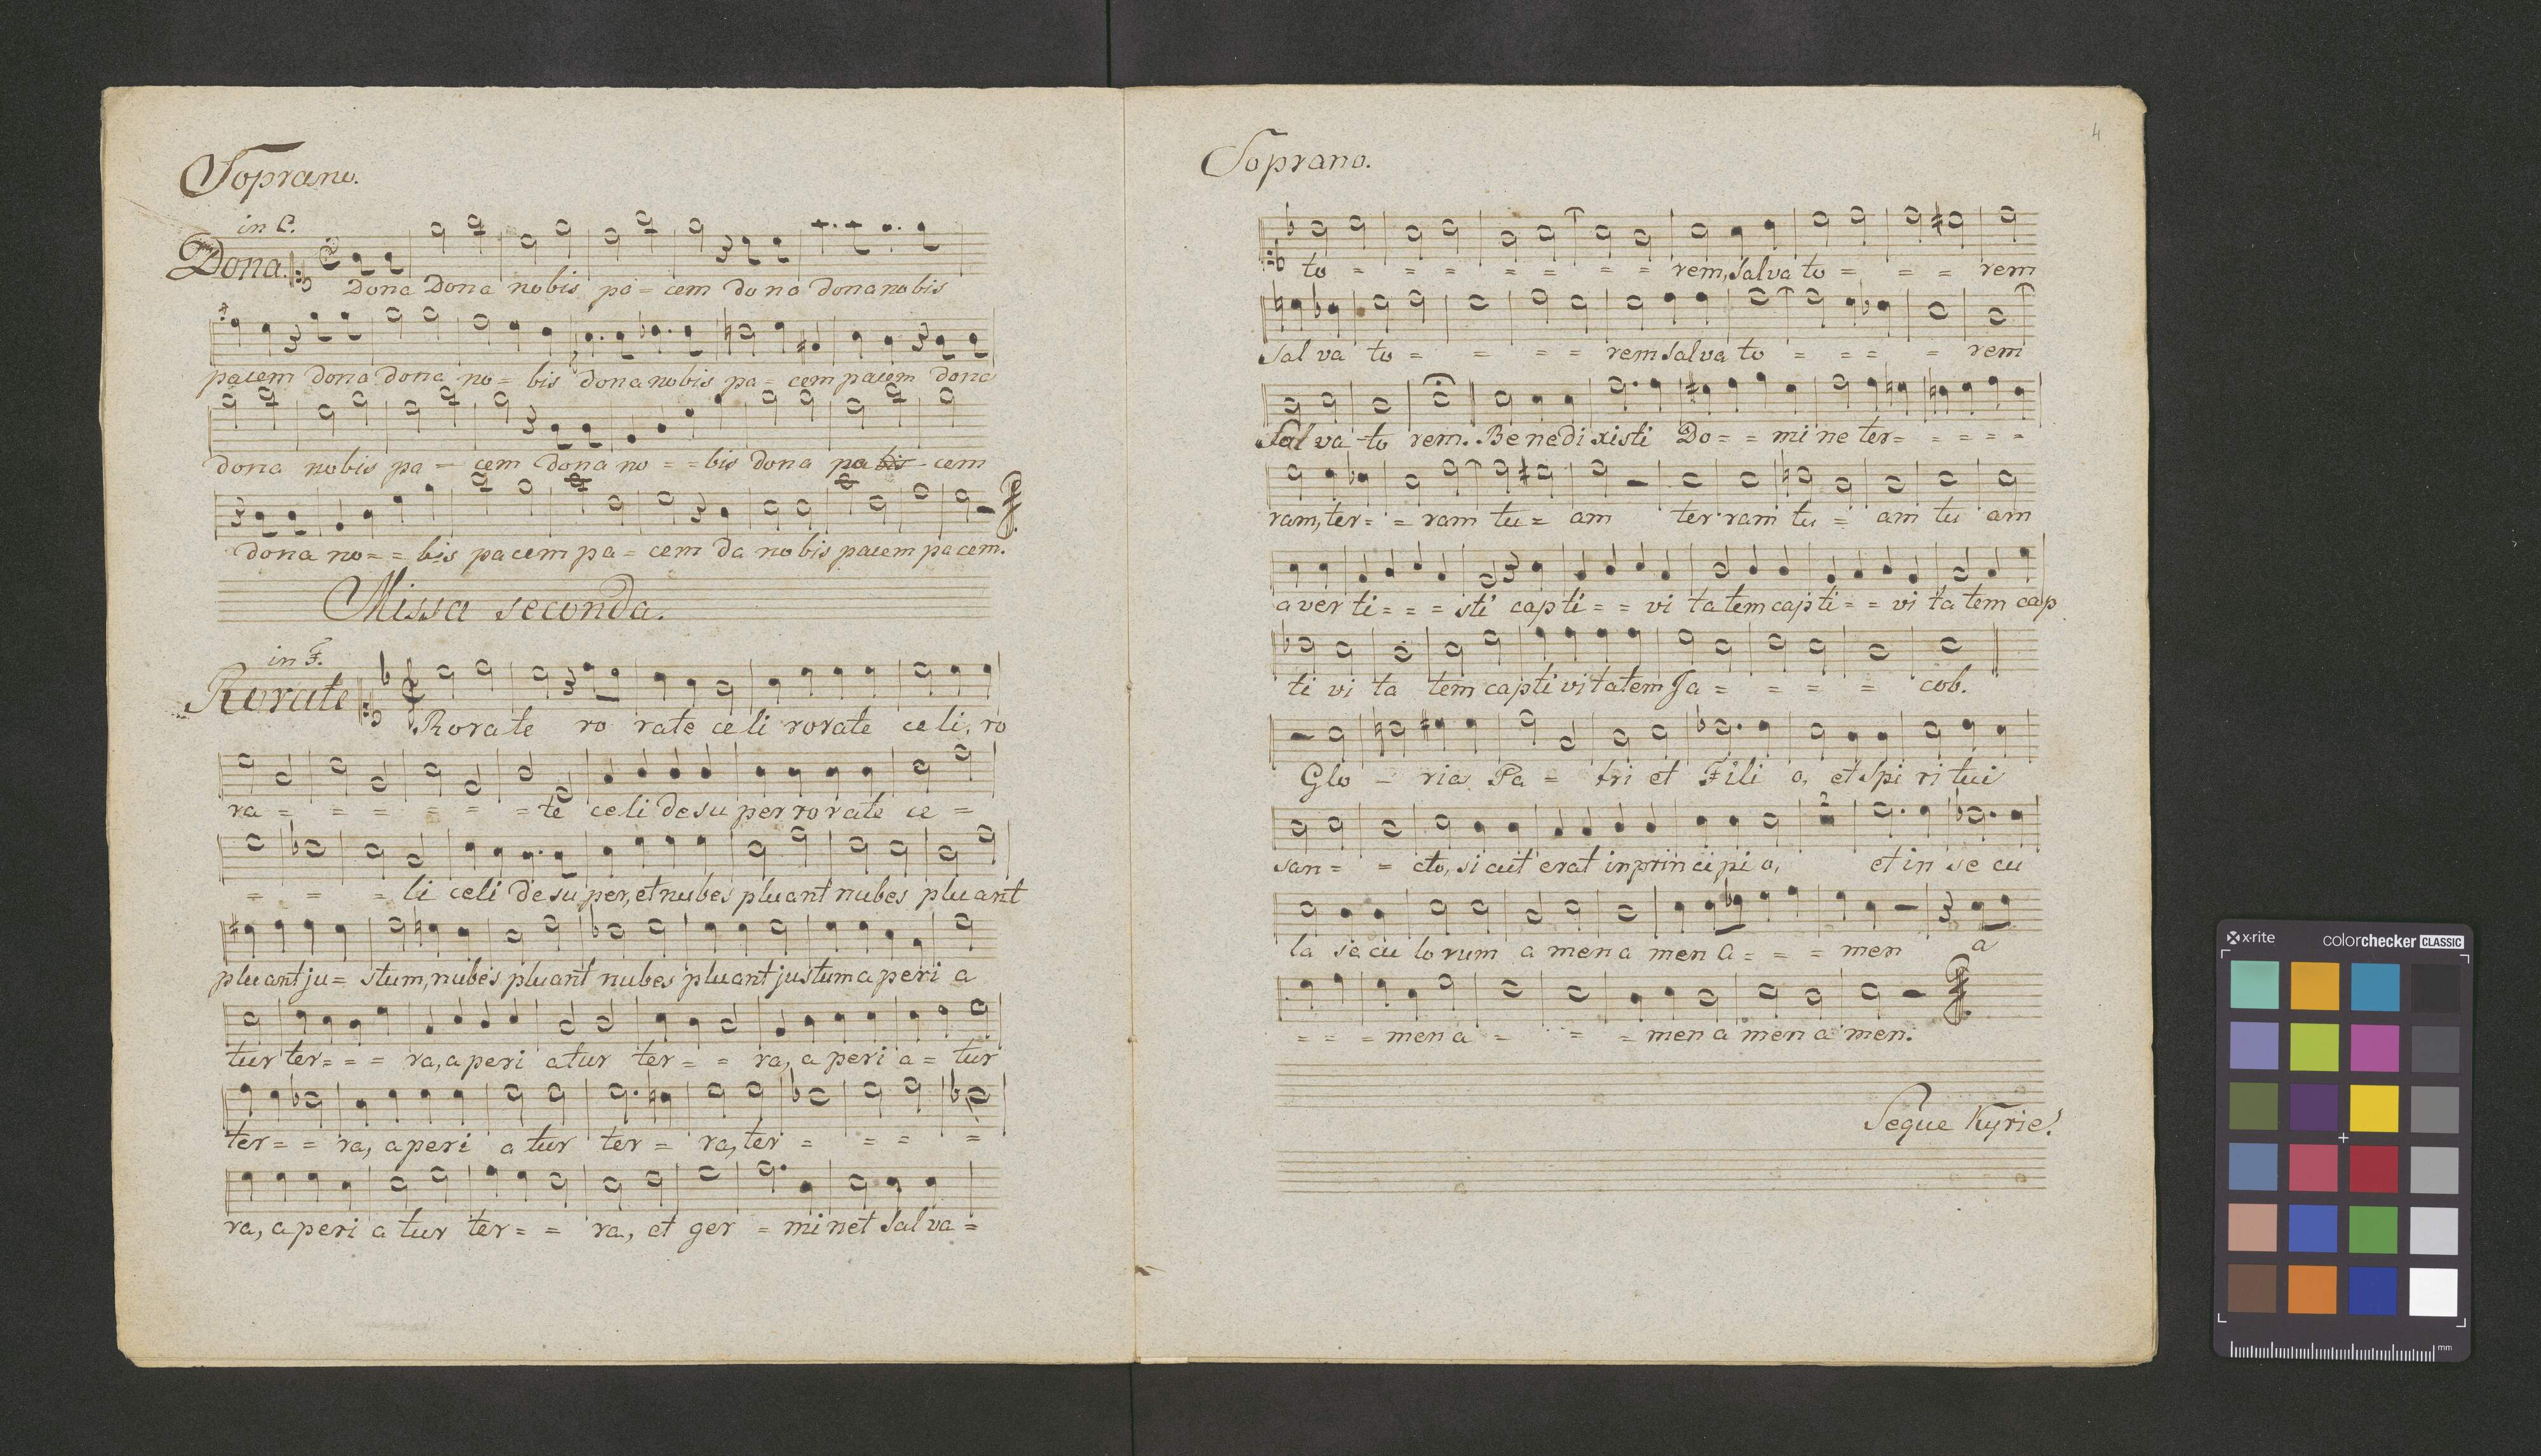 Soprano.
in C.
Dona.
Dona Dona nobis pa = cem dona dona nobis
pacem dona dona no = bis dona nobis pa = cem pacem dona
dona nobis pa - cem dona no = = bis dona pa bis - cem
dona no = = bis pacem pa = cem da nobis pacem pacem.
Missa seconda.
in F.
Rorate
Rorate ro rate celi rorate celi, ro
ra = = = = = = te celi desuper rorate ce =
= = = li celi desuper, et nubes pluant nubes pluant
pluant ju = stum, nubes pluant nubes pluant justum aperi a
tur ter = = = ra, aperi atur ter = = ra, aperi a = tur
ter = = ra, aperi atur ter = ra, ter = = = =
ra, aperi atur ter = = ra, et ger = minet Salva =
4
Soprano.
to = = = = = = = rem, Salva to = = = rem
Salva to = = = = rem Salva to = = = = rem
Salva to rem. Benedixisti Do = = mine ter = = = = =
ram, ter = = ram tu = am ter ram tu = am tu am
averti = = = sti capti = = vi tatem capti = = vi tatem cap
ti vi ta tem captivitatem Ja = = = = cob.
Glo - ria Pa = tri et Filio, et Spiritui
san = = cto, sicut erat in principio, et in secu
2
la seculorum amen amen a = = = men a
= = = men a = = = men amen amen.
Seque Kyrie.
x-rite
colorchecker CLASSIC
mm